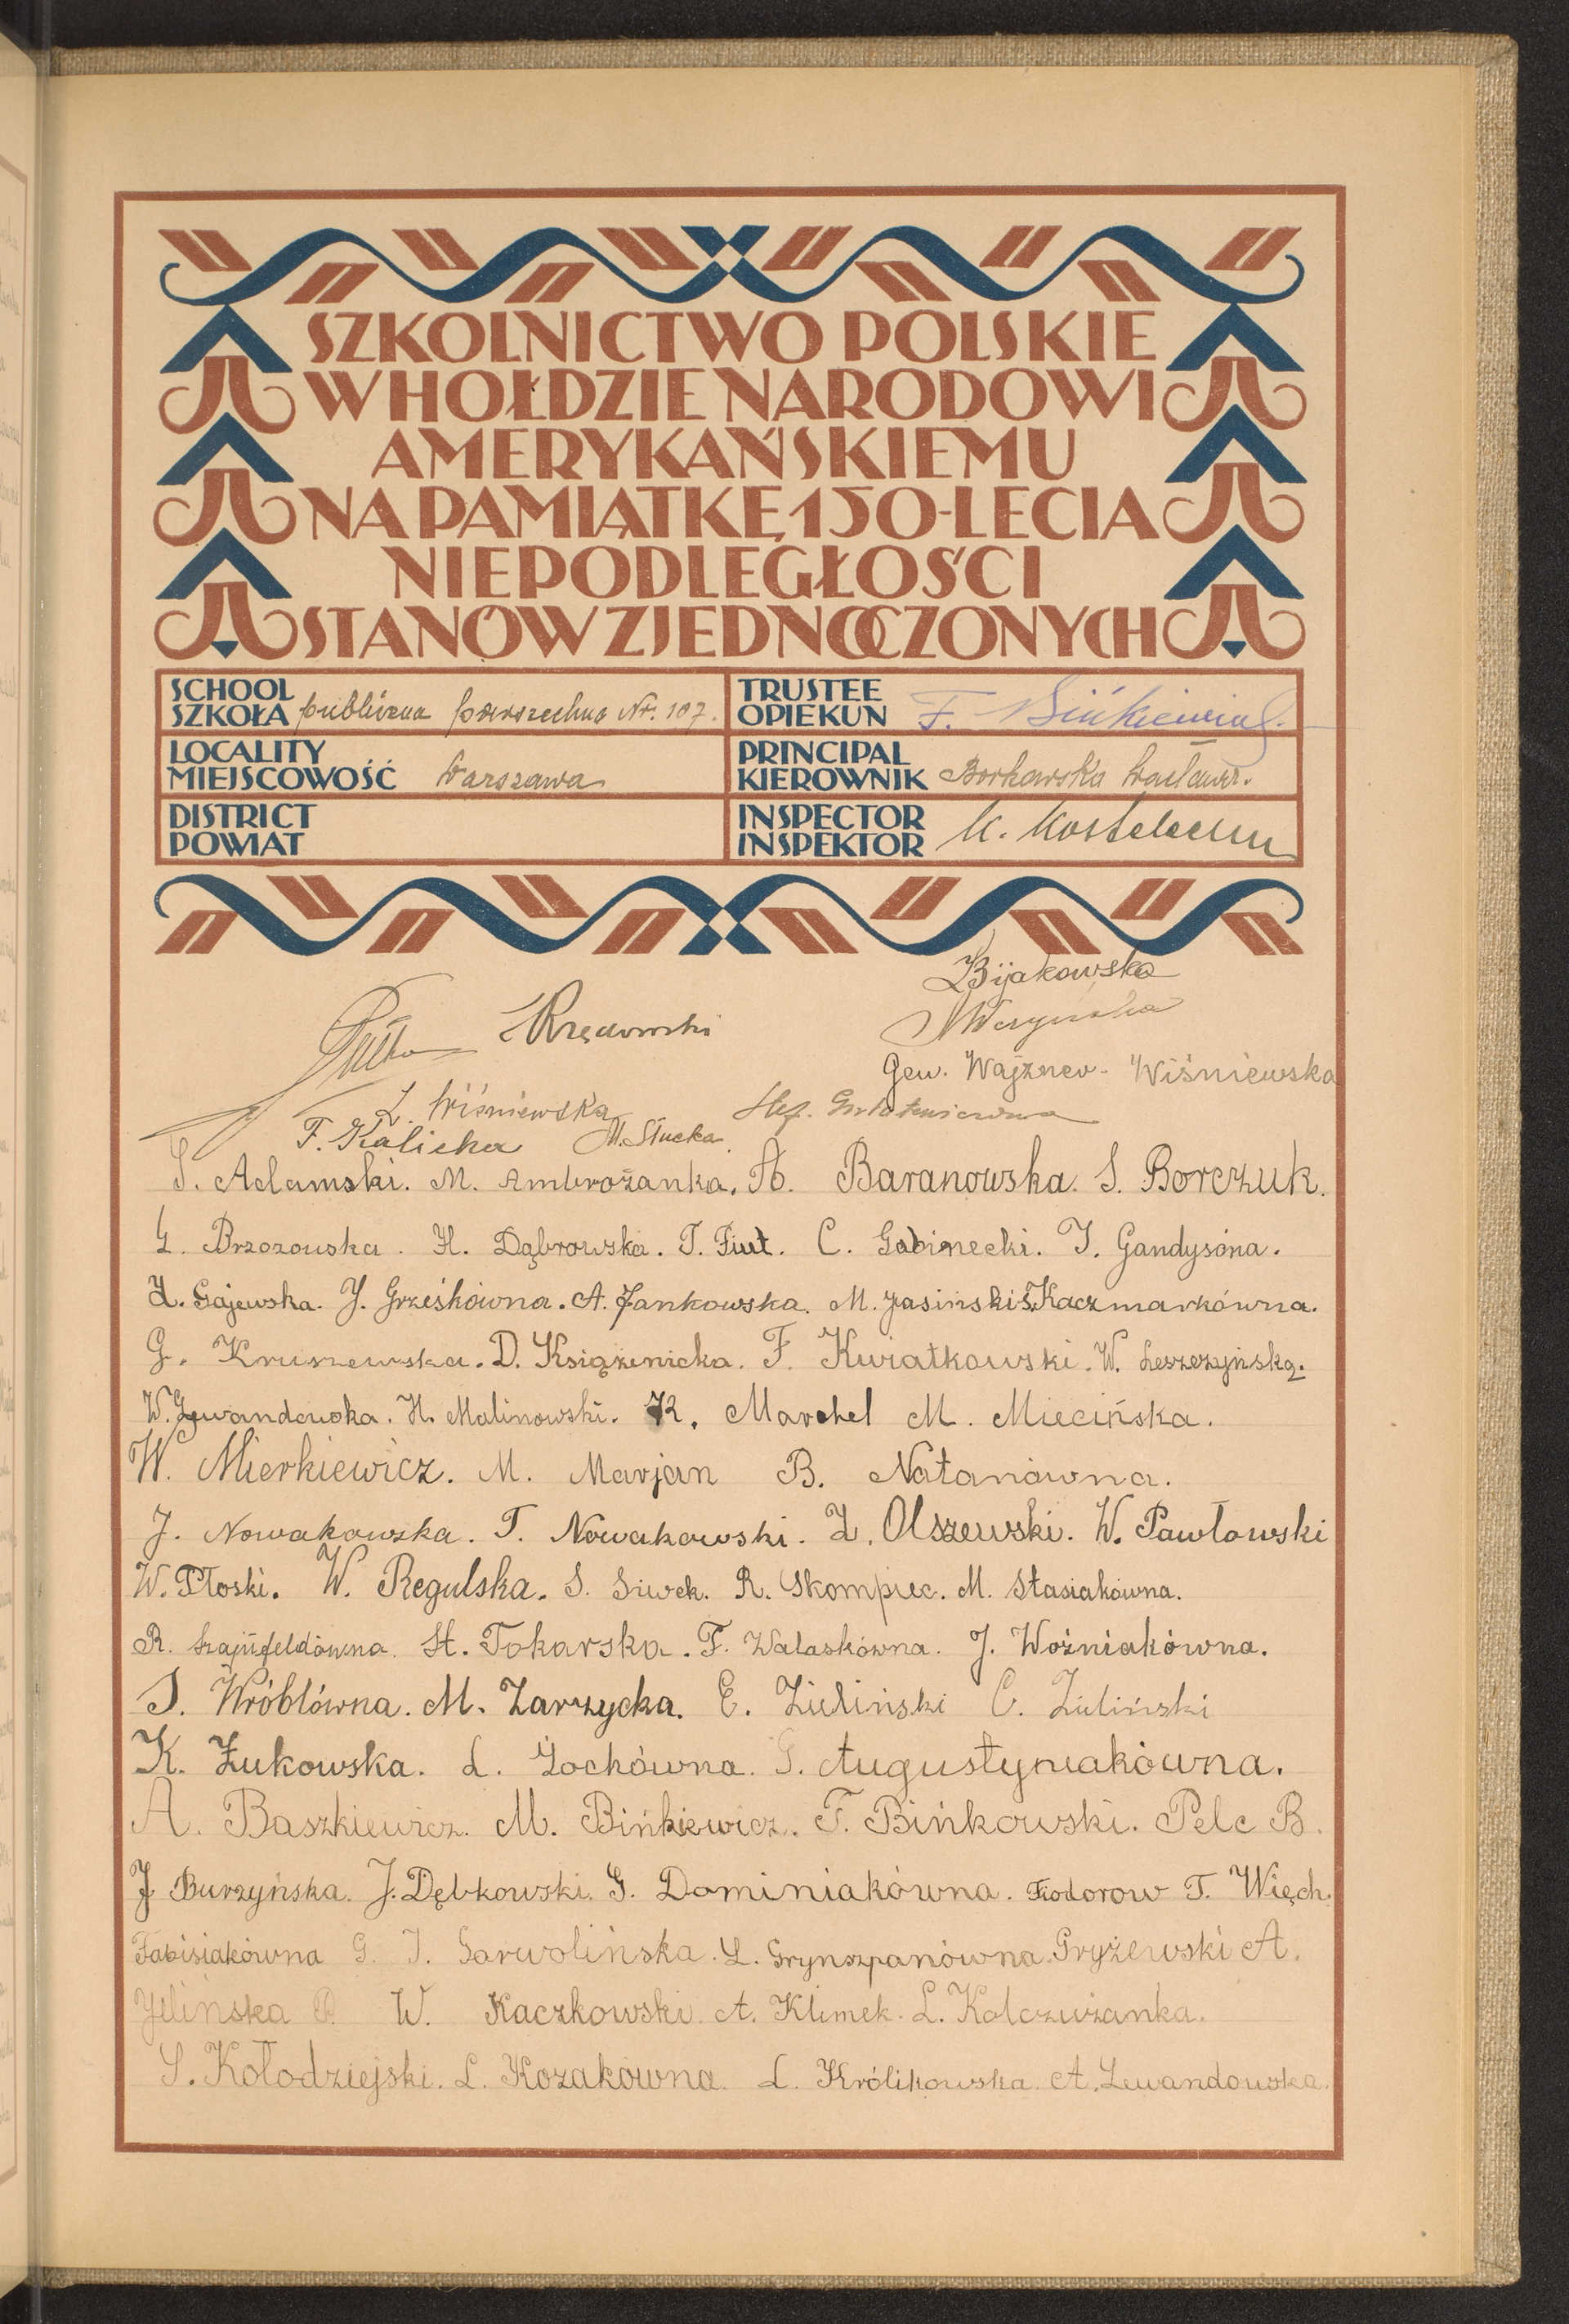 SZKOLNICTWO POLSKIE
W HOŁDZIE NARODOWI
AMERYKAŃSKIEMU
NA PAMIĄTKĘ 150-LECIA
NIEPODLEGŁOŚCI
STANÓW ZJEDNOCZONYCH
SCHOOL
SZKOŁA publiczna powszechna Nr. 107.
TRUSTEE
OPIEKUN F. Bińkiewicz
LOCALITY
MIEJSCOWOŚĆ Warszawa
PRINCIPAL
KIEROWNIK Borkowska Wacława.
DISTRICT
POWIAT
INSPECTOR
INSPEKTOR K.
Bijakowska
Rzędowski
Gew. Wajzner-Wiśniewska
Z. Wiśniewska Stef.
F. Kalicka M. Słucka.
S. Adamski. M. Ambrożanka. A. Baranowska. S. Borczuk.
G. Brzozowska. H. Dąbrowska. T. Fiut. C. Gabinecki. J. Gandysóna.
H. Gajewska. J. Grześkówna. A. Jankowska. M. Jasiński. S. Kaczmarkówna.
G. Kruszewska. D. Książenicka. F. Kwiatkowski. W. Leszczyńska.
W. Lewandowska. H. Malinowski. K. Marchel M. Miecińska.
W. Mierkiewicz. M. Marjan B. Natanówna.
J. Nowakowska. T. Nowakowski. Z. Olszewski. W. Pawłowski
W. Płoski. W. Regulska. S. Siwek. R. Skompiec. M. Stasiakówna.
R. Szajnfeldówna. St. Tokarska. F. Walaskówna. J. Woźniakówna.
S. Wróblówna. M. Zarzycka. E. Zieliński C. Zieliński
K. Żukowska. L. Żochówna. G. Augustyniakówna.
A. Baszkiewicz. M. Bińkiewicz. F. Bińkowski. Pelc B.
J. Burzyńska. J. Dębkowski. G. Dominiakówna. Fiodorow T. Więch.
Fabisiakówna G. J. Garwolińska. L. Grynszpanówna. Gryżewski A.
Jelińska P. W. Kaczkowski. A. Klimek. L. Kolczużanka.
S. Kołodziejski. L. Kozakówna. L. Królikowska. A. Lewandowska.